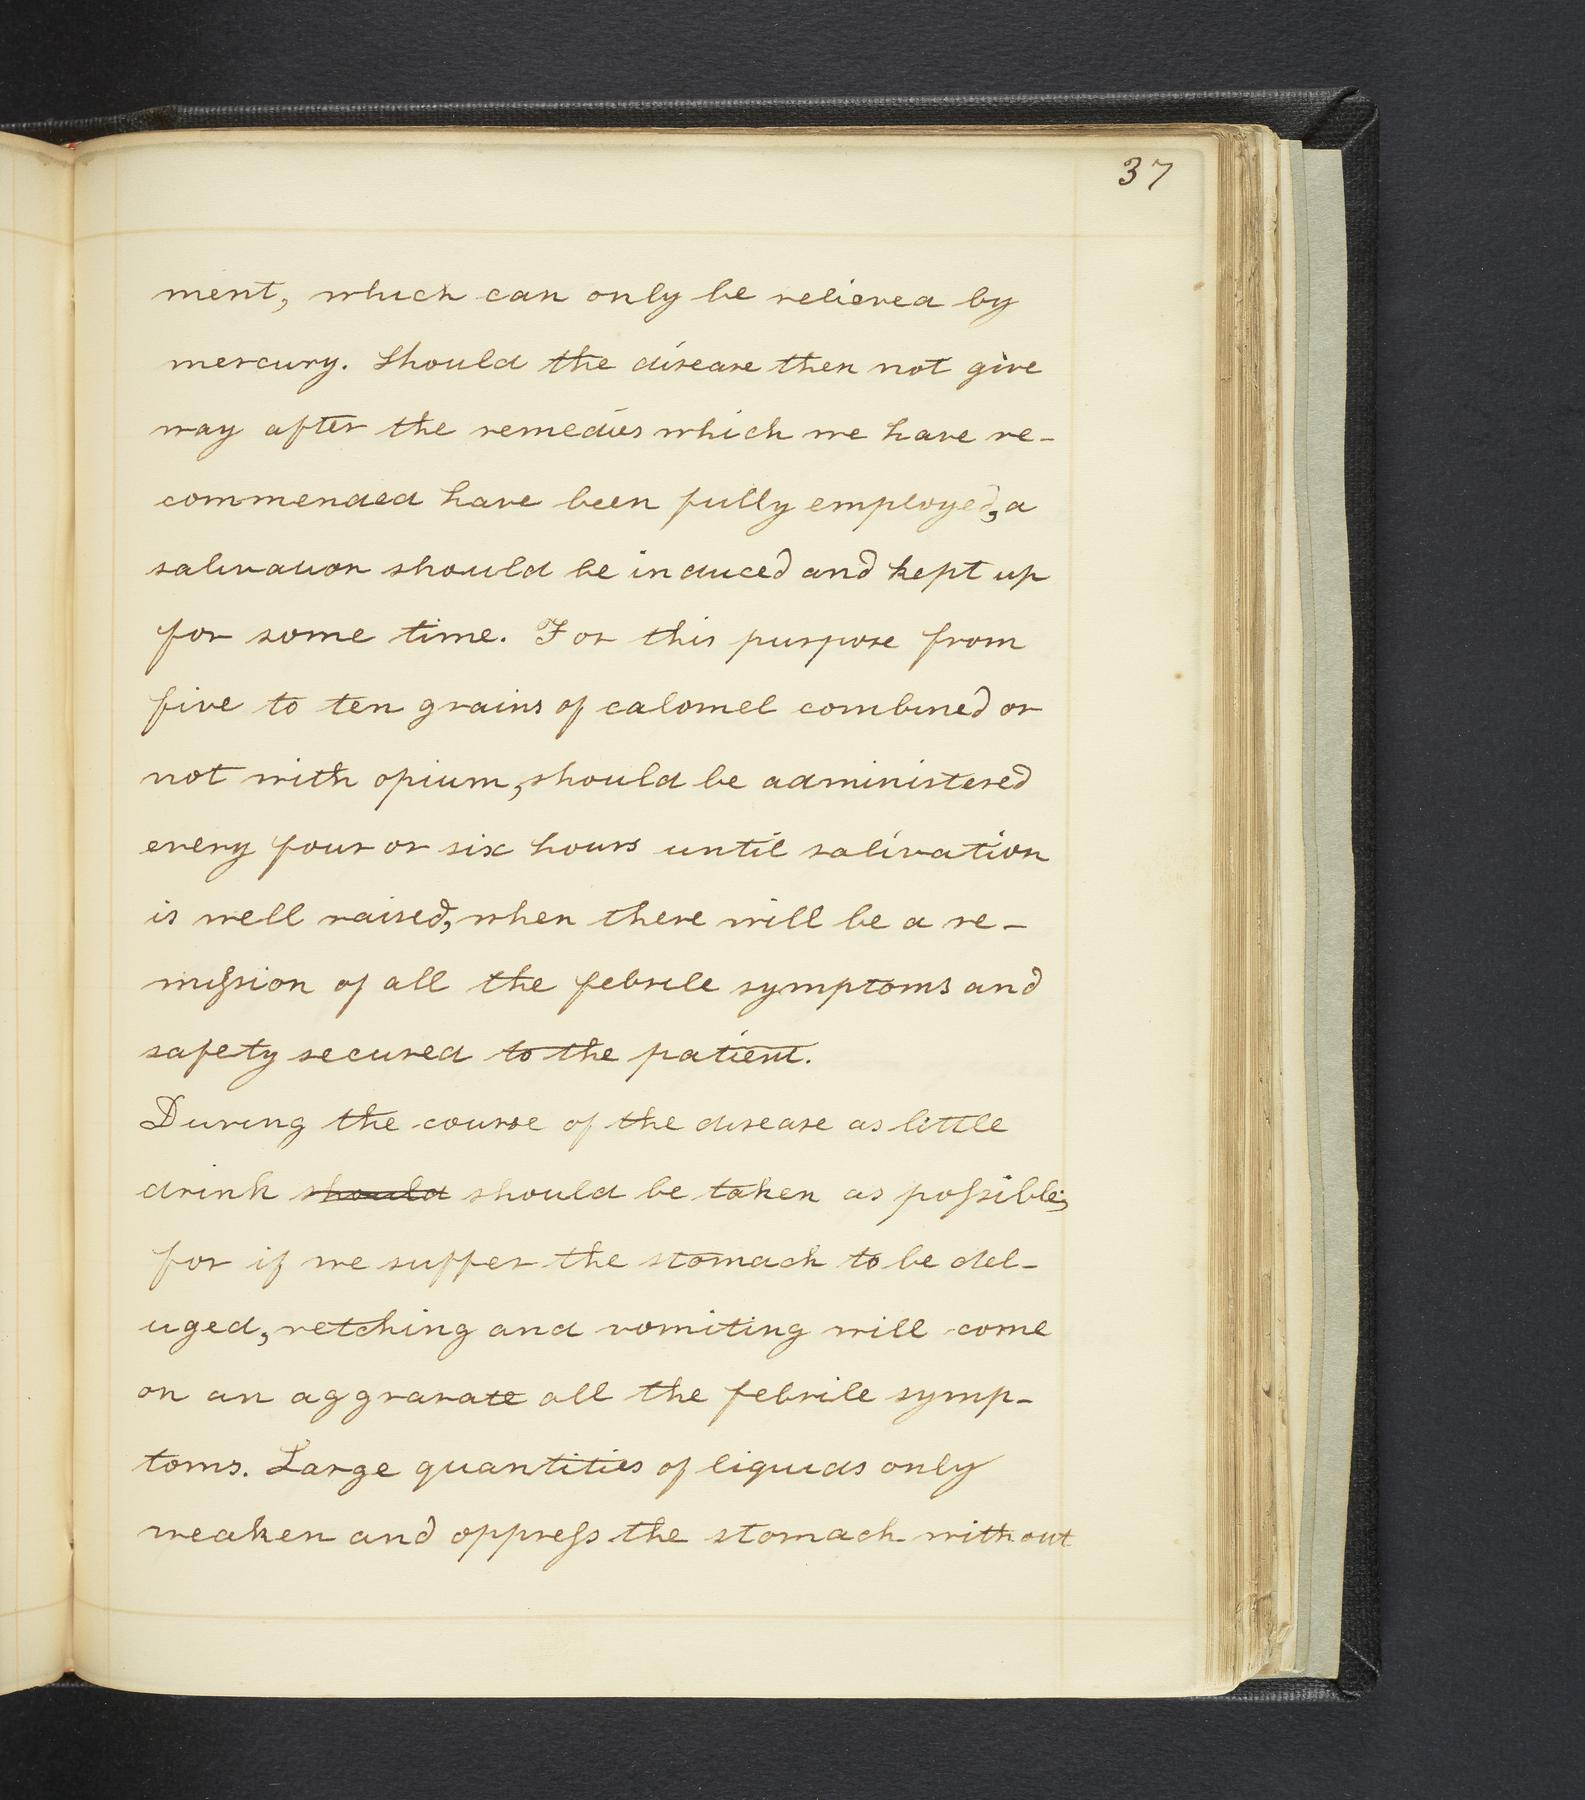 37
ment, which can only be relieved by
mercury. Should the disease then not give
way after the remedies which we have re-
commended have been fully employed, a
salivation should be induced and kept up
for some time. For this purpose from
five to ten grains of calomel combined or
not with opium, should be administered
every four or six hours until salivation
is well raised, when there will be a re-
mission of all the febrile symptoms and
safety secured to the patient.
During the course of the disease as little
drink should should be taken as possible;
for if we suffer the stomach to be del-
uged, retching and vomiting will come
on an aggravate all the febrile symp-
toms. Large quantities of liquids only
weaken and oppress the stomach without